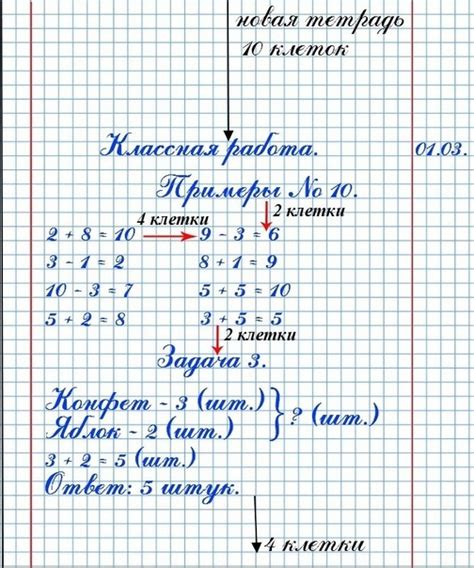 новая тетрадь
10 клеток
Классная работа. 01.03.
Примеры № 10.
4 клетки 2 клетки
2 + 8 = 10 9 - 3 = 6
3 - 1 = 2 8 + 1 = 9
10 - 3 = 7 5 + 5 = 10
5 + 2 = 8 3 + 5 = 5
2 клетки
Задача 3.
Конфет - 3 (шт.) } ? (шт.)
Яблок - 2 (шт.)
3 + 2 = 5 (шт.)
Ответ: 5 штук.
4 клетки